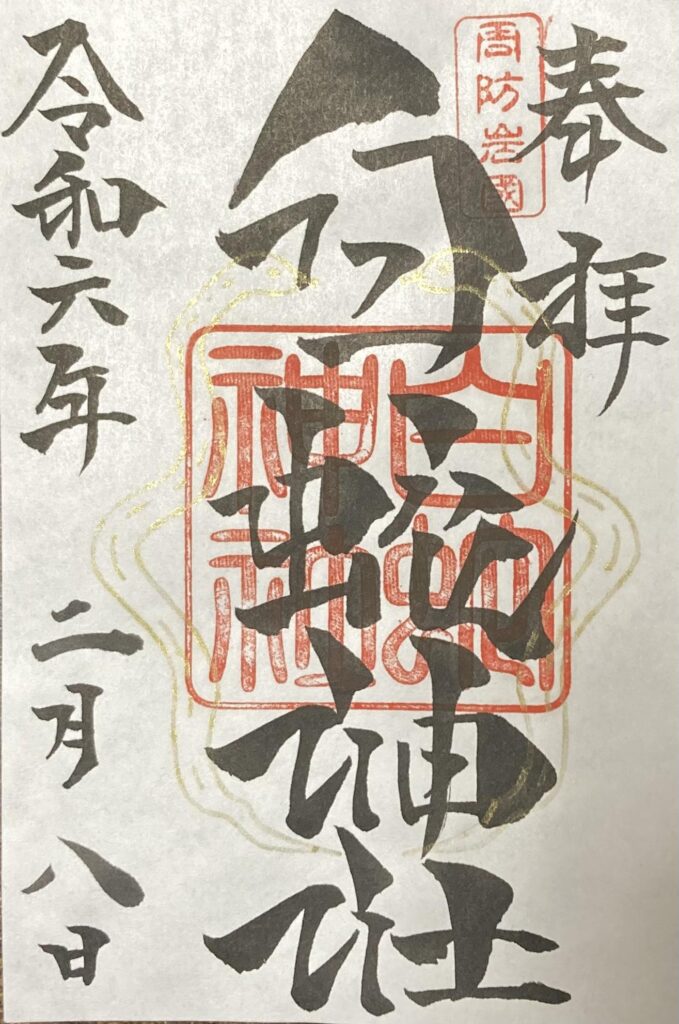 奉拝
周防岩國
白蛇神社
白蛇神社
令和六年
二月八日